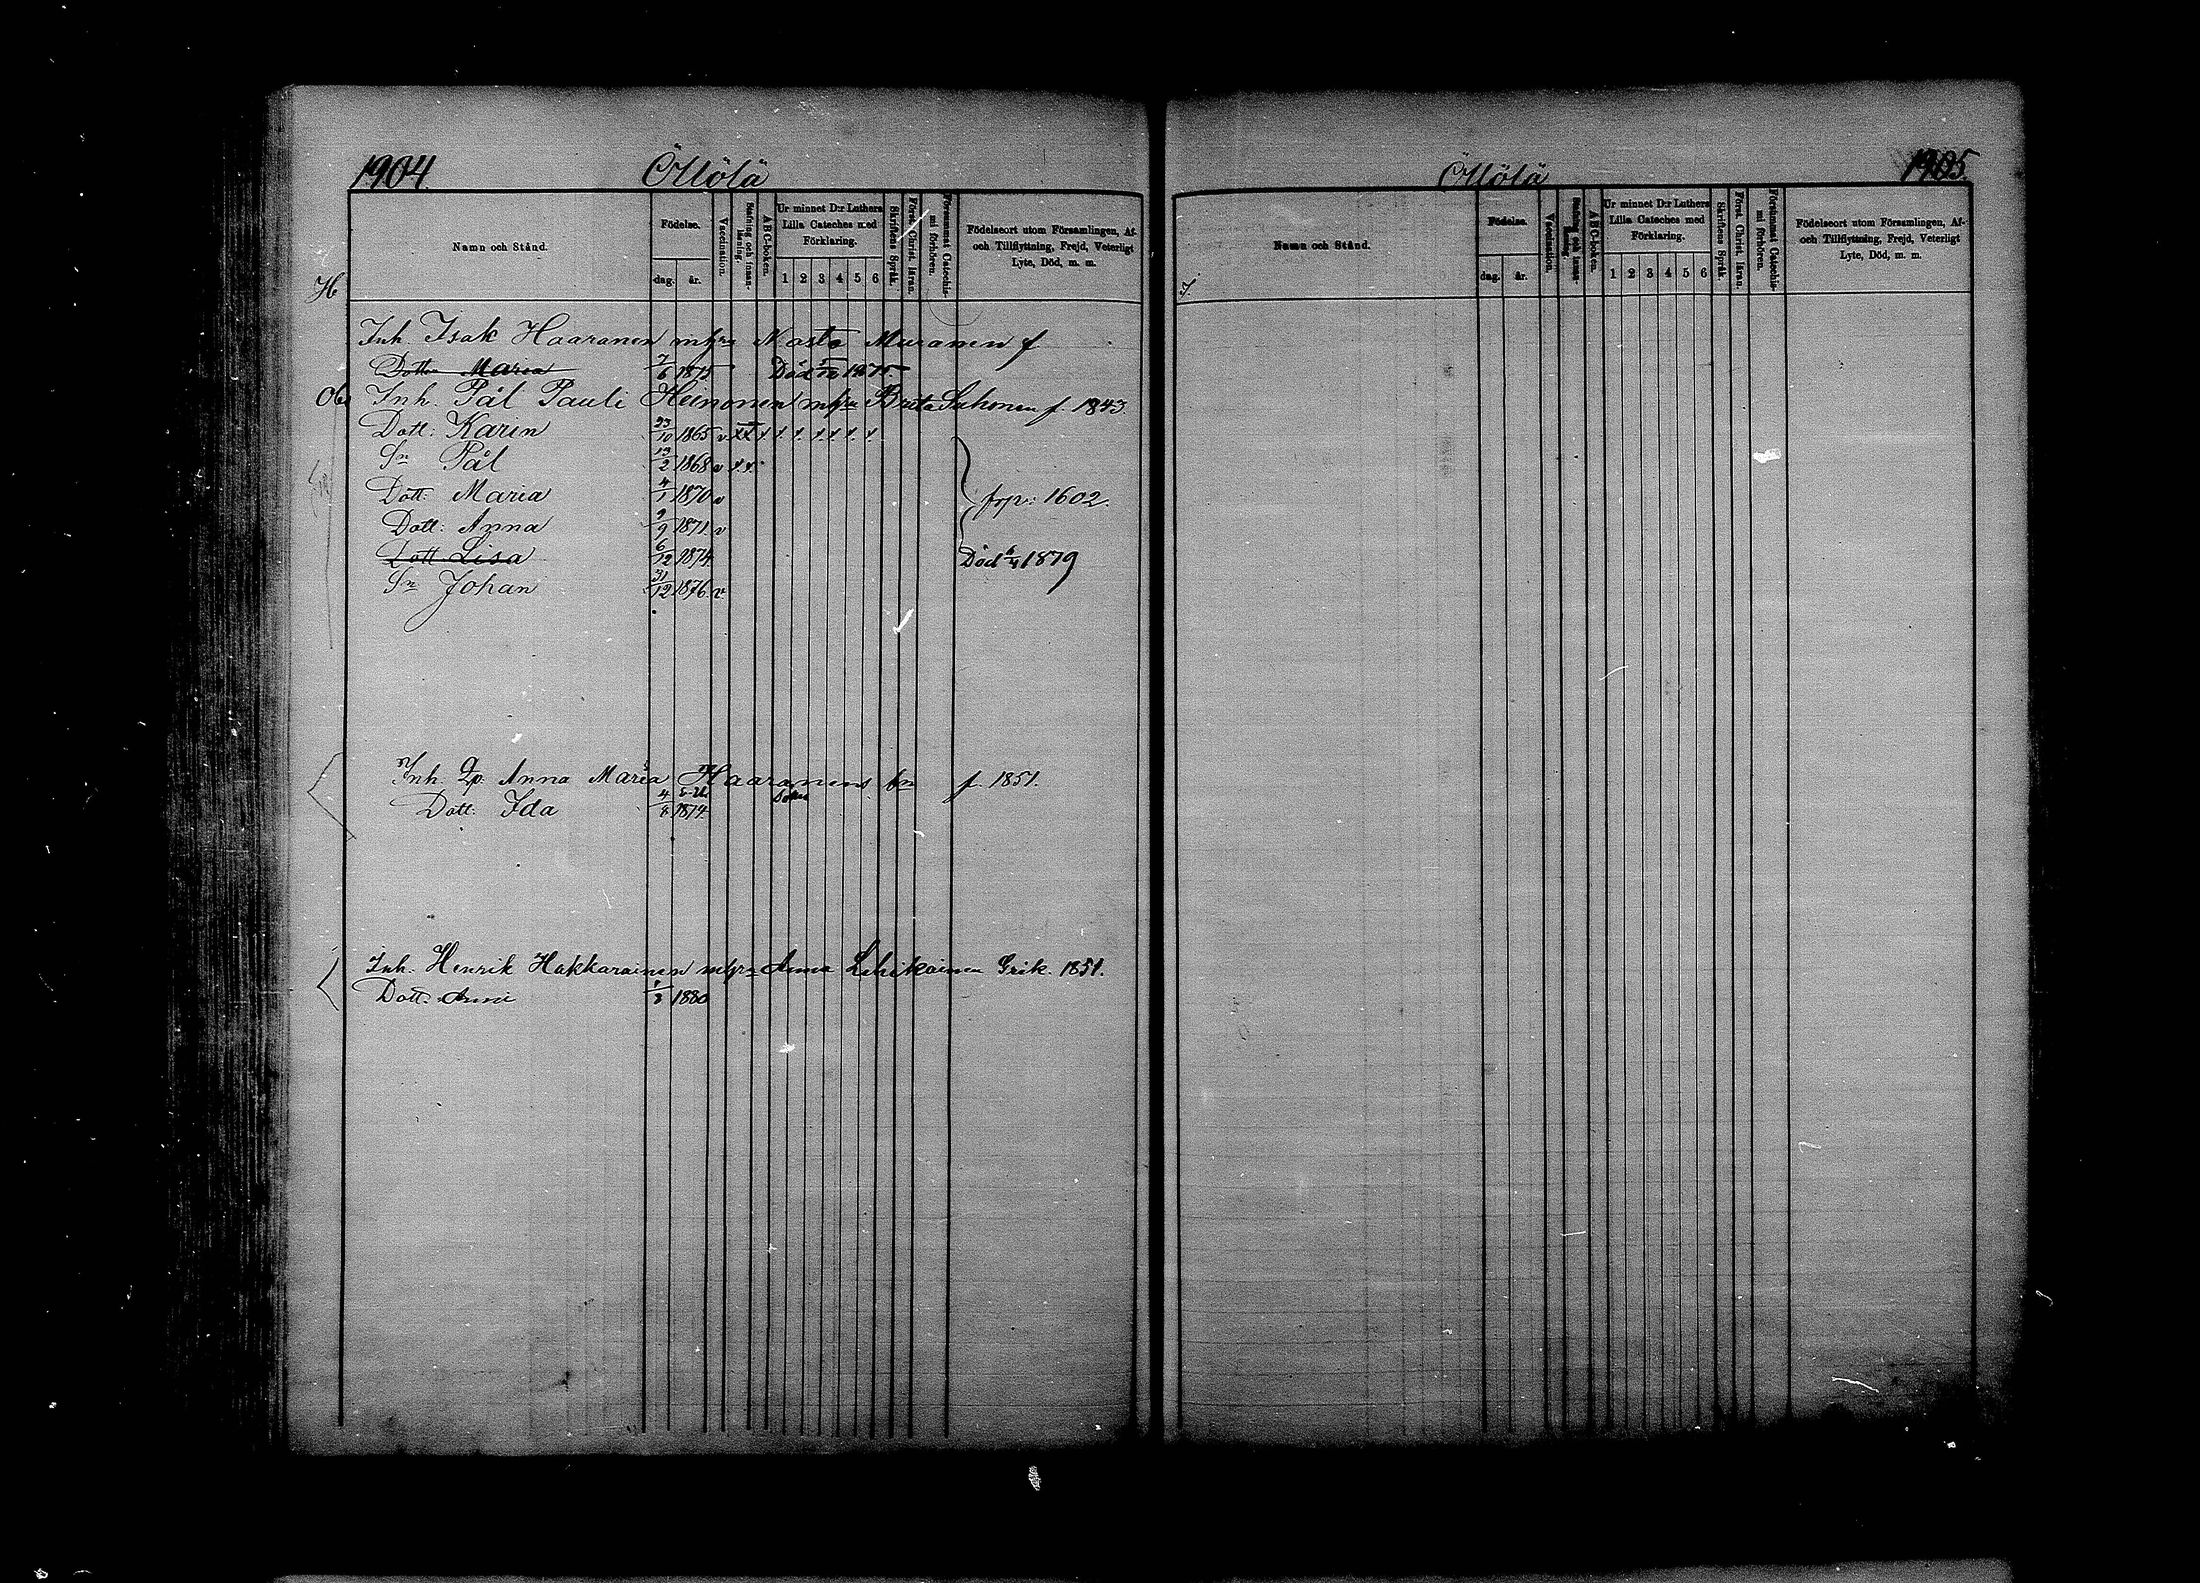 1904 Öllölä
Namn och Stånd. Födelse. dag. år. Vaccination. Stafning och innan-läsning. ABC-boken. Ur minnet D:r Luthers Lilla Cateches med Förklaring. 1 2 3 4 5 6 Skriftens Språk. Först. Christ. läran. Försummat Catechis-mi förhören. Födelseort utom Församlingen, Af- och Tillflyttning, Frejd, Veterligt Lyte, Död, m. m.
H
Inh. Isak Haaranen Nasto Muranen f
Dotter Maria 7/6 1875 Död 1875.
Ob. Inh. Pål Pauli Heinonen Brita Suhonen f. 1843.
Dott: Karin 23/10 1865 v
Sn Pål 13/2 1868 v
Dott: Maria 4/1 1870 v frp: 1602.
Dott: Anna 9/9 1871. v
Dott Lisa 6/12 1874 Död 1879
Sn Johan 31/12 1876. v
Inh. Anna Maria Haaranens f. 1851.
Dott: Ida 4/8 1874
Inh. Henrik Hakkarainen Anna Lihikainen Grik. 1851.
Dott: Anni 1880
Öllölä 1905.
Namn och Stånd. Födelse. dag. år. Vaccination. Stafning och innan-läsning. ABC-boken. Ur minnet D:r Luthers Lilla Cateches med Förklaring. 1 2 3 4 5 6 Skriftens Språk. Först. Christ. läran. Försummat Catechis-mi förhören. Födelseort utom Församlingen, Af- och Tillflyttning, Frejd, Veterligt Lyte, Död, m. m.